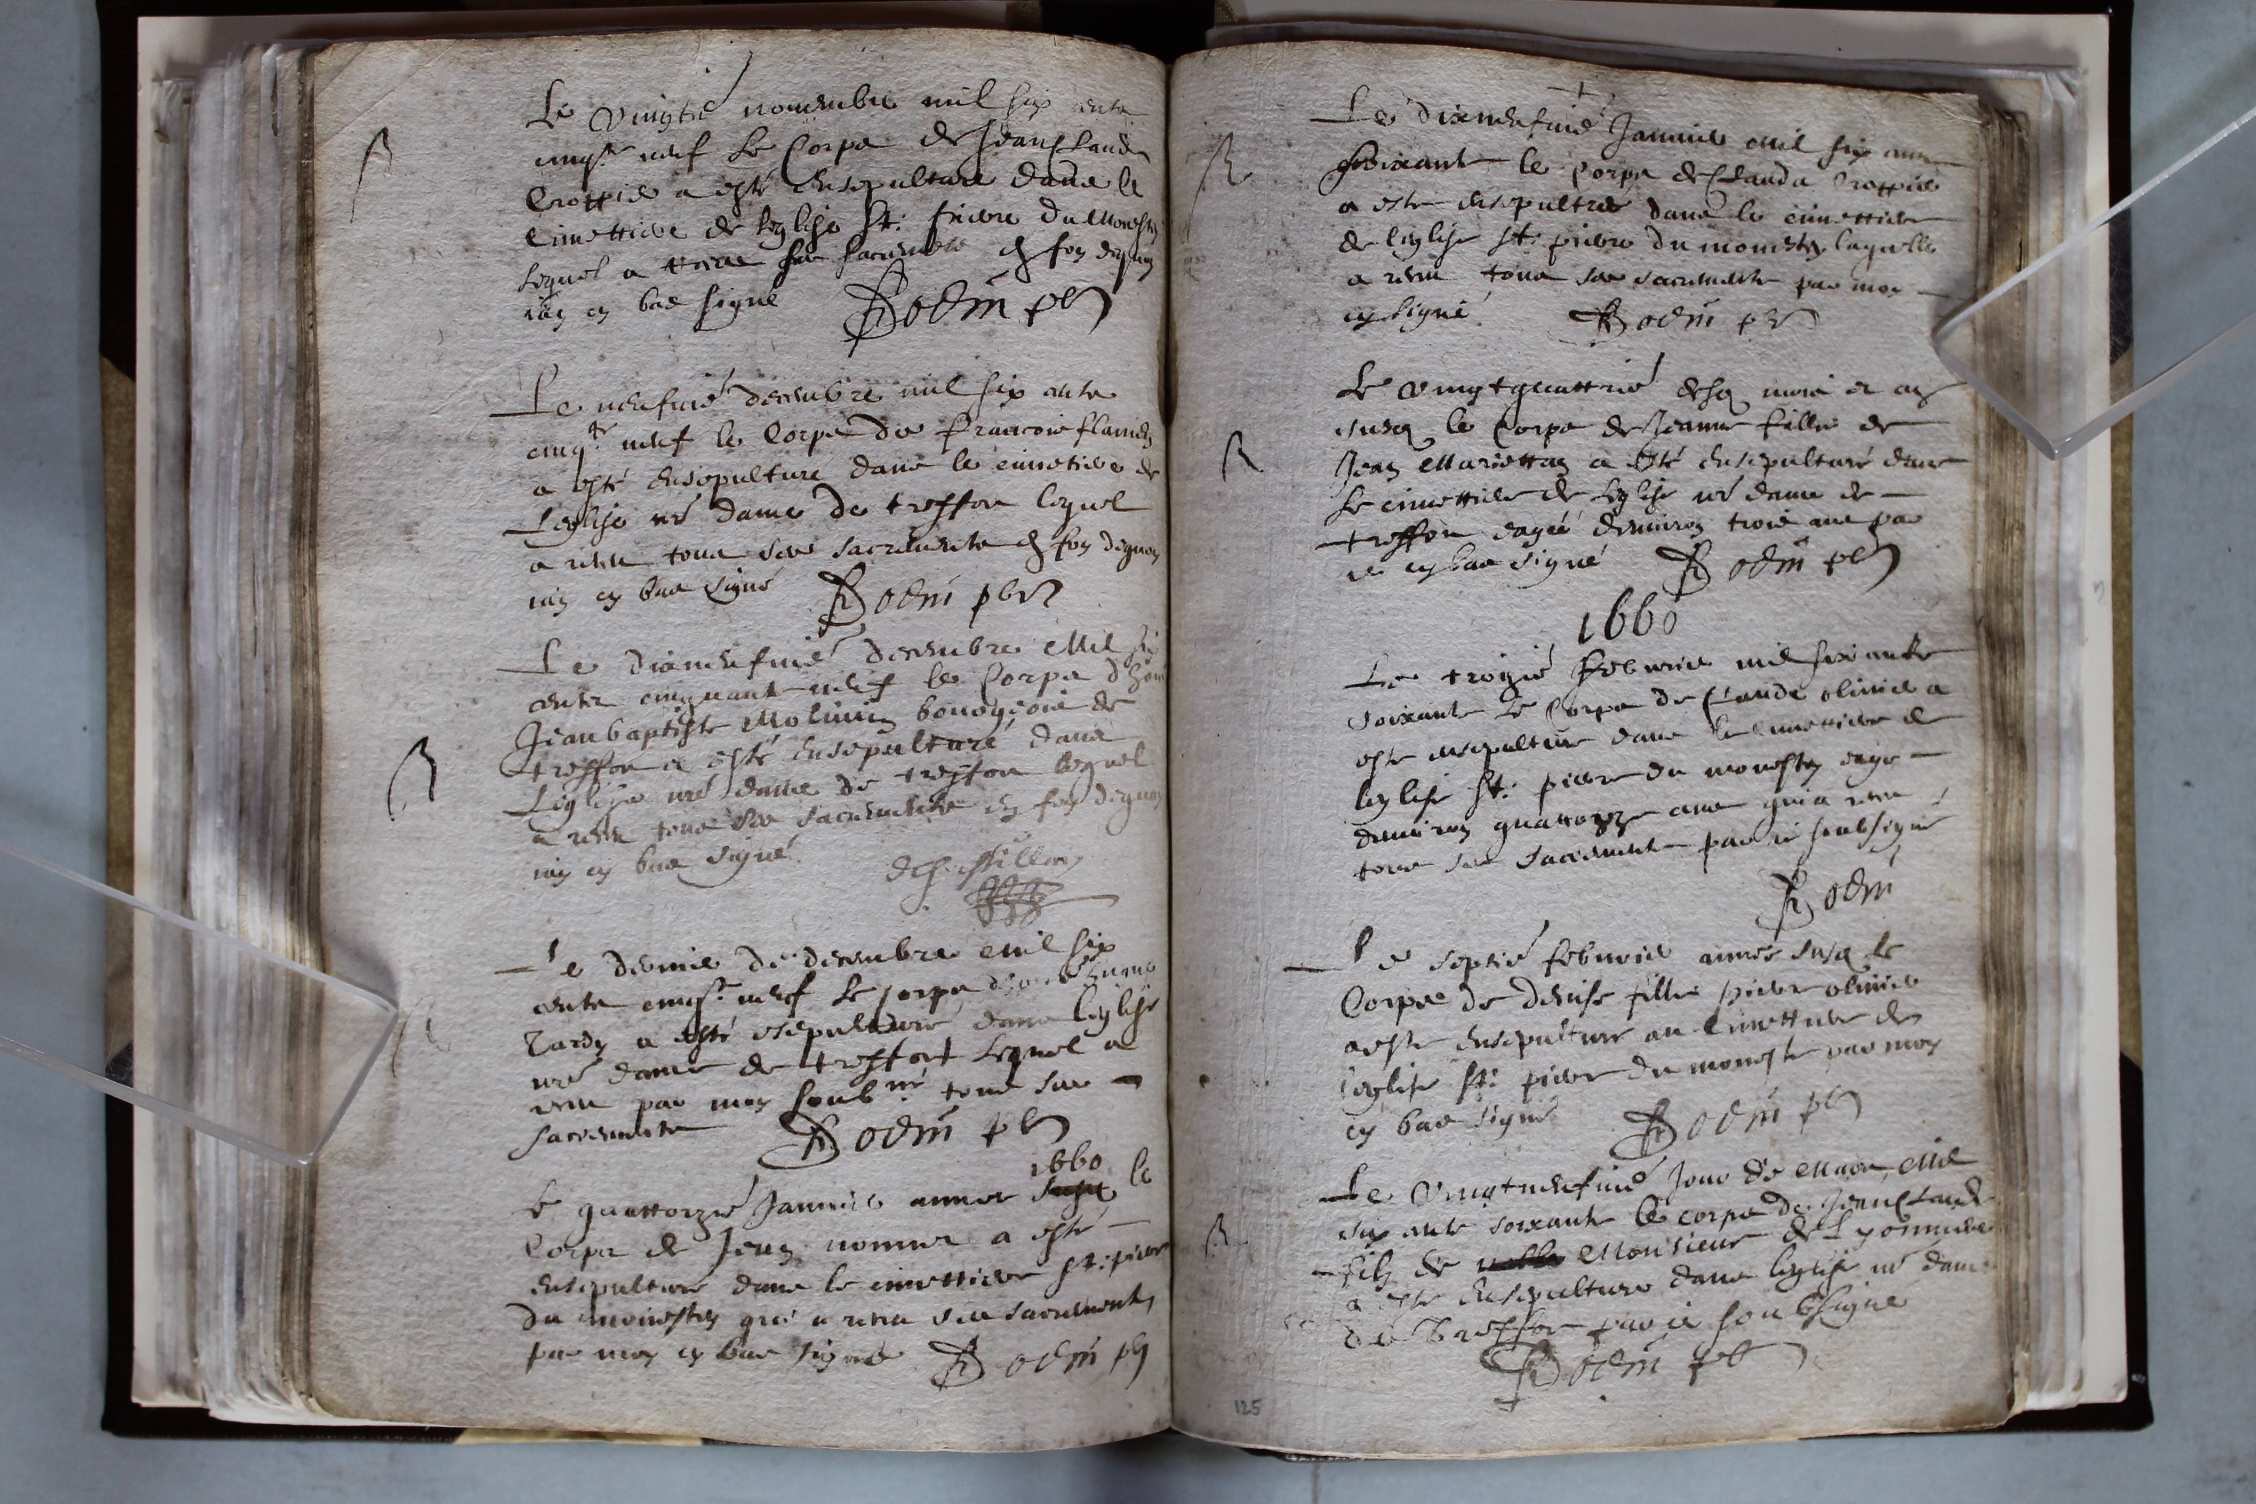 Le vingtie novembre mil six cents
cinqte neuf le Corps de Jean Claude
Croppie a esté ensepulturé dans le
cimettiere de leglise St: pierre du monesty
lequel a receu ses sacrements en foy dequoy
iay cy bas signé Bodin pbr
Le neufvie decembre mil six cents
cinqte neuf le Corps de francois flamen
a esté ensepulturé dans le cimetiere de
Leglise nre dame de treffort lequel
a receu tous ses sacrements en foy dequoy
iay cy bas signé Bodin pbr
Le dixneufvie decembre Mil six
cents cinquante neuf le Corps
Jean baptiste Molinin bourgeois de
treffort a esté ensepulturé dans
Leglise nre dame de treffort lequel
a receu tous ses sacrements en foy dequoy
iay cy bas signé
Le dernie de decembre Mil six
cents cinqte neuf le corps
Tardy a esté ensepulturé dans leglise
nre dame de treffort lequel a
receu par moy soubné tous ses
sacrements Bodin pbr
1660
le quattorzie Janvier annee susd le
Corps de Jean nomme a esté
ensepulturé dans le cimettiere St: pierre
du monestey qui a receu ses sacrements
par moy cy bas signé Bodin pbr
Le dixneufvie Janvier Mil six cents
soixante le Corps de Clauda Croppie
a este ensepultree dans le cimettiere
de leglise St: pierre du monestey laquelle
a receu tous ses sacrements par moy
cy signé Bodin pbr
Le vingtquattrie desd mois et an
susd le Corps de Jeanne fille de
Jean Mariettan a esté ensepulturé dans
Le cimettiere de leglise nre dame de
treffort eagée denviron trois ans par
ie cy bas signé Bodin pbr
1660
Le trozie febvrier mil six cents
soixante le Corps de Claude olivier a
este ensepulturé dans le cimettiere de
leglise St: pierre du monestey eage
denviron quattorze ans qui a receu
tous ses sacrements par ie soubsigné
Bodin
Le septie febvrier année susd le
Corps de denise fille pierre olivier
a este ensepulture au cimettiere de
leglise St: pierre du monestey par moy
cy bas signé Bodin pbr
Le vingtneufvie Jour de Mars Mil
six cents soixante le corps de Jean Claude
filz de Monsieur de Lyonnieres
a este ensepulturé dans leglise nre dame
de Treffort par ie soubsigné
Bodin pbr
125